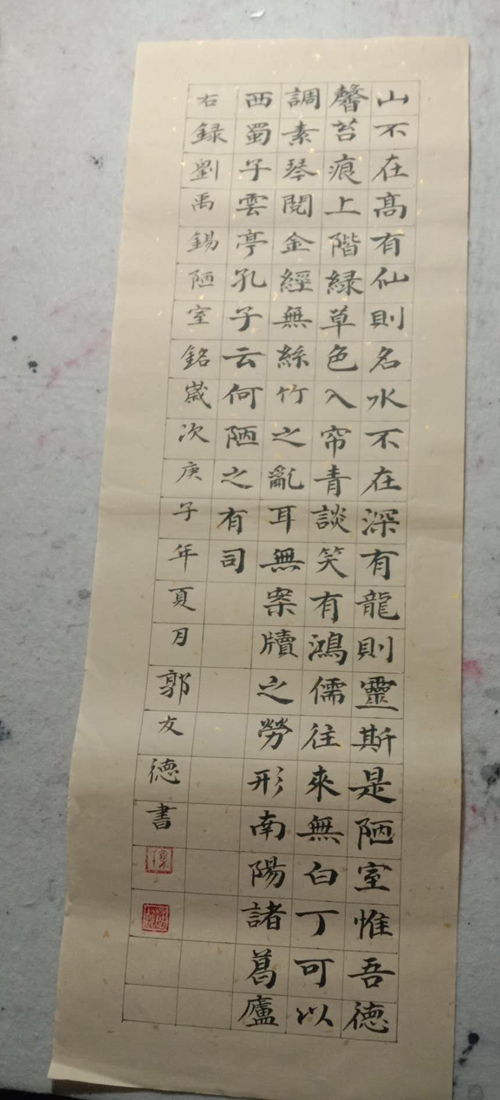 山不在髙有仙則名水不在深有龍則靈斯是陋室惟吾德
馨苔痕上階緑草色入帘青談笑有鴻儒往來無白丁可以
調素琴閱金經無絲竹之亂耳無案牘之勞形南陽諸葛廬
西蜀子雲亭孔子云何陋之有司
右録劉禹錫陋室銘歲次庚子年夏月郭友德書